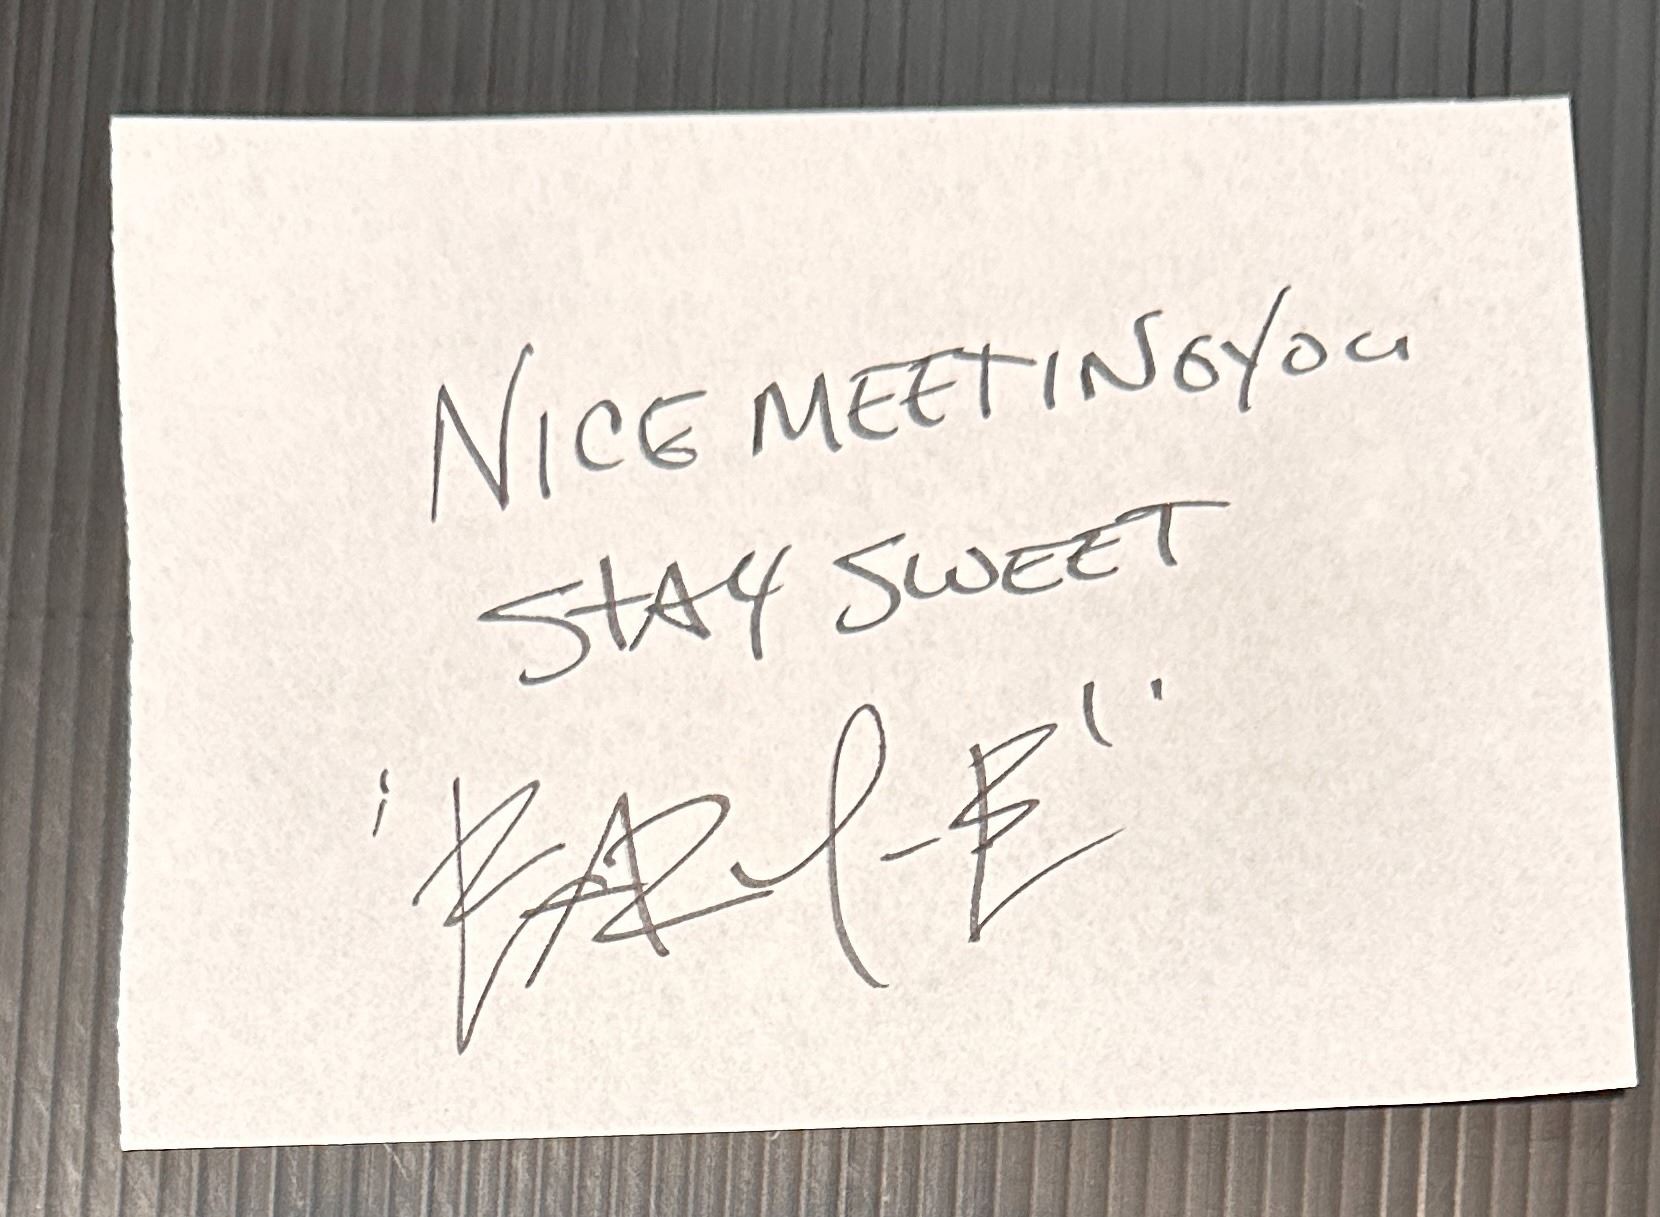 NICE MEETING YOU
STAY SWEET
"EARL-E"